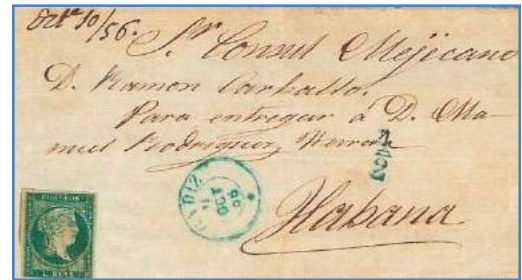 Oct.e 10/56.
Sr. Consul Mejicano
D. Ramon Carballo.
Para entregar á D. Ma-
nuel Rodriguez Herran
Habana
CADIZ
OCT
56
CORREOS
1 REAL